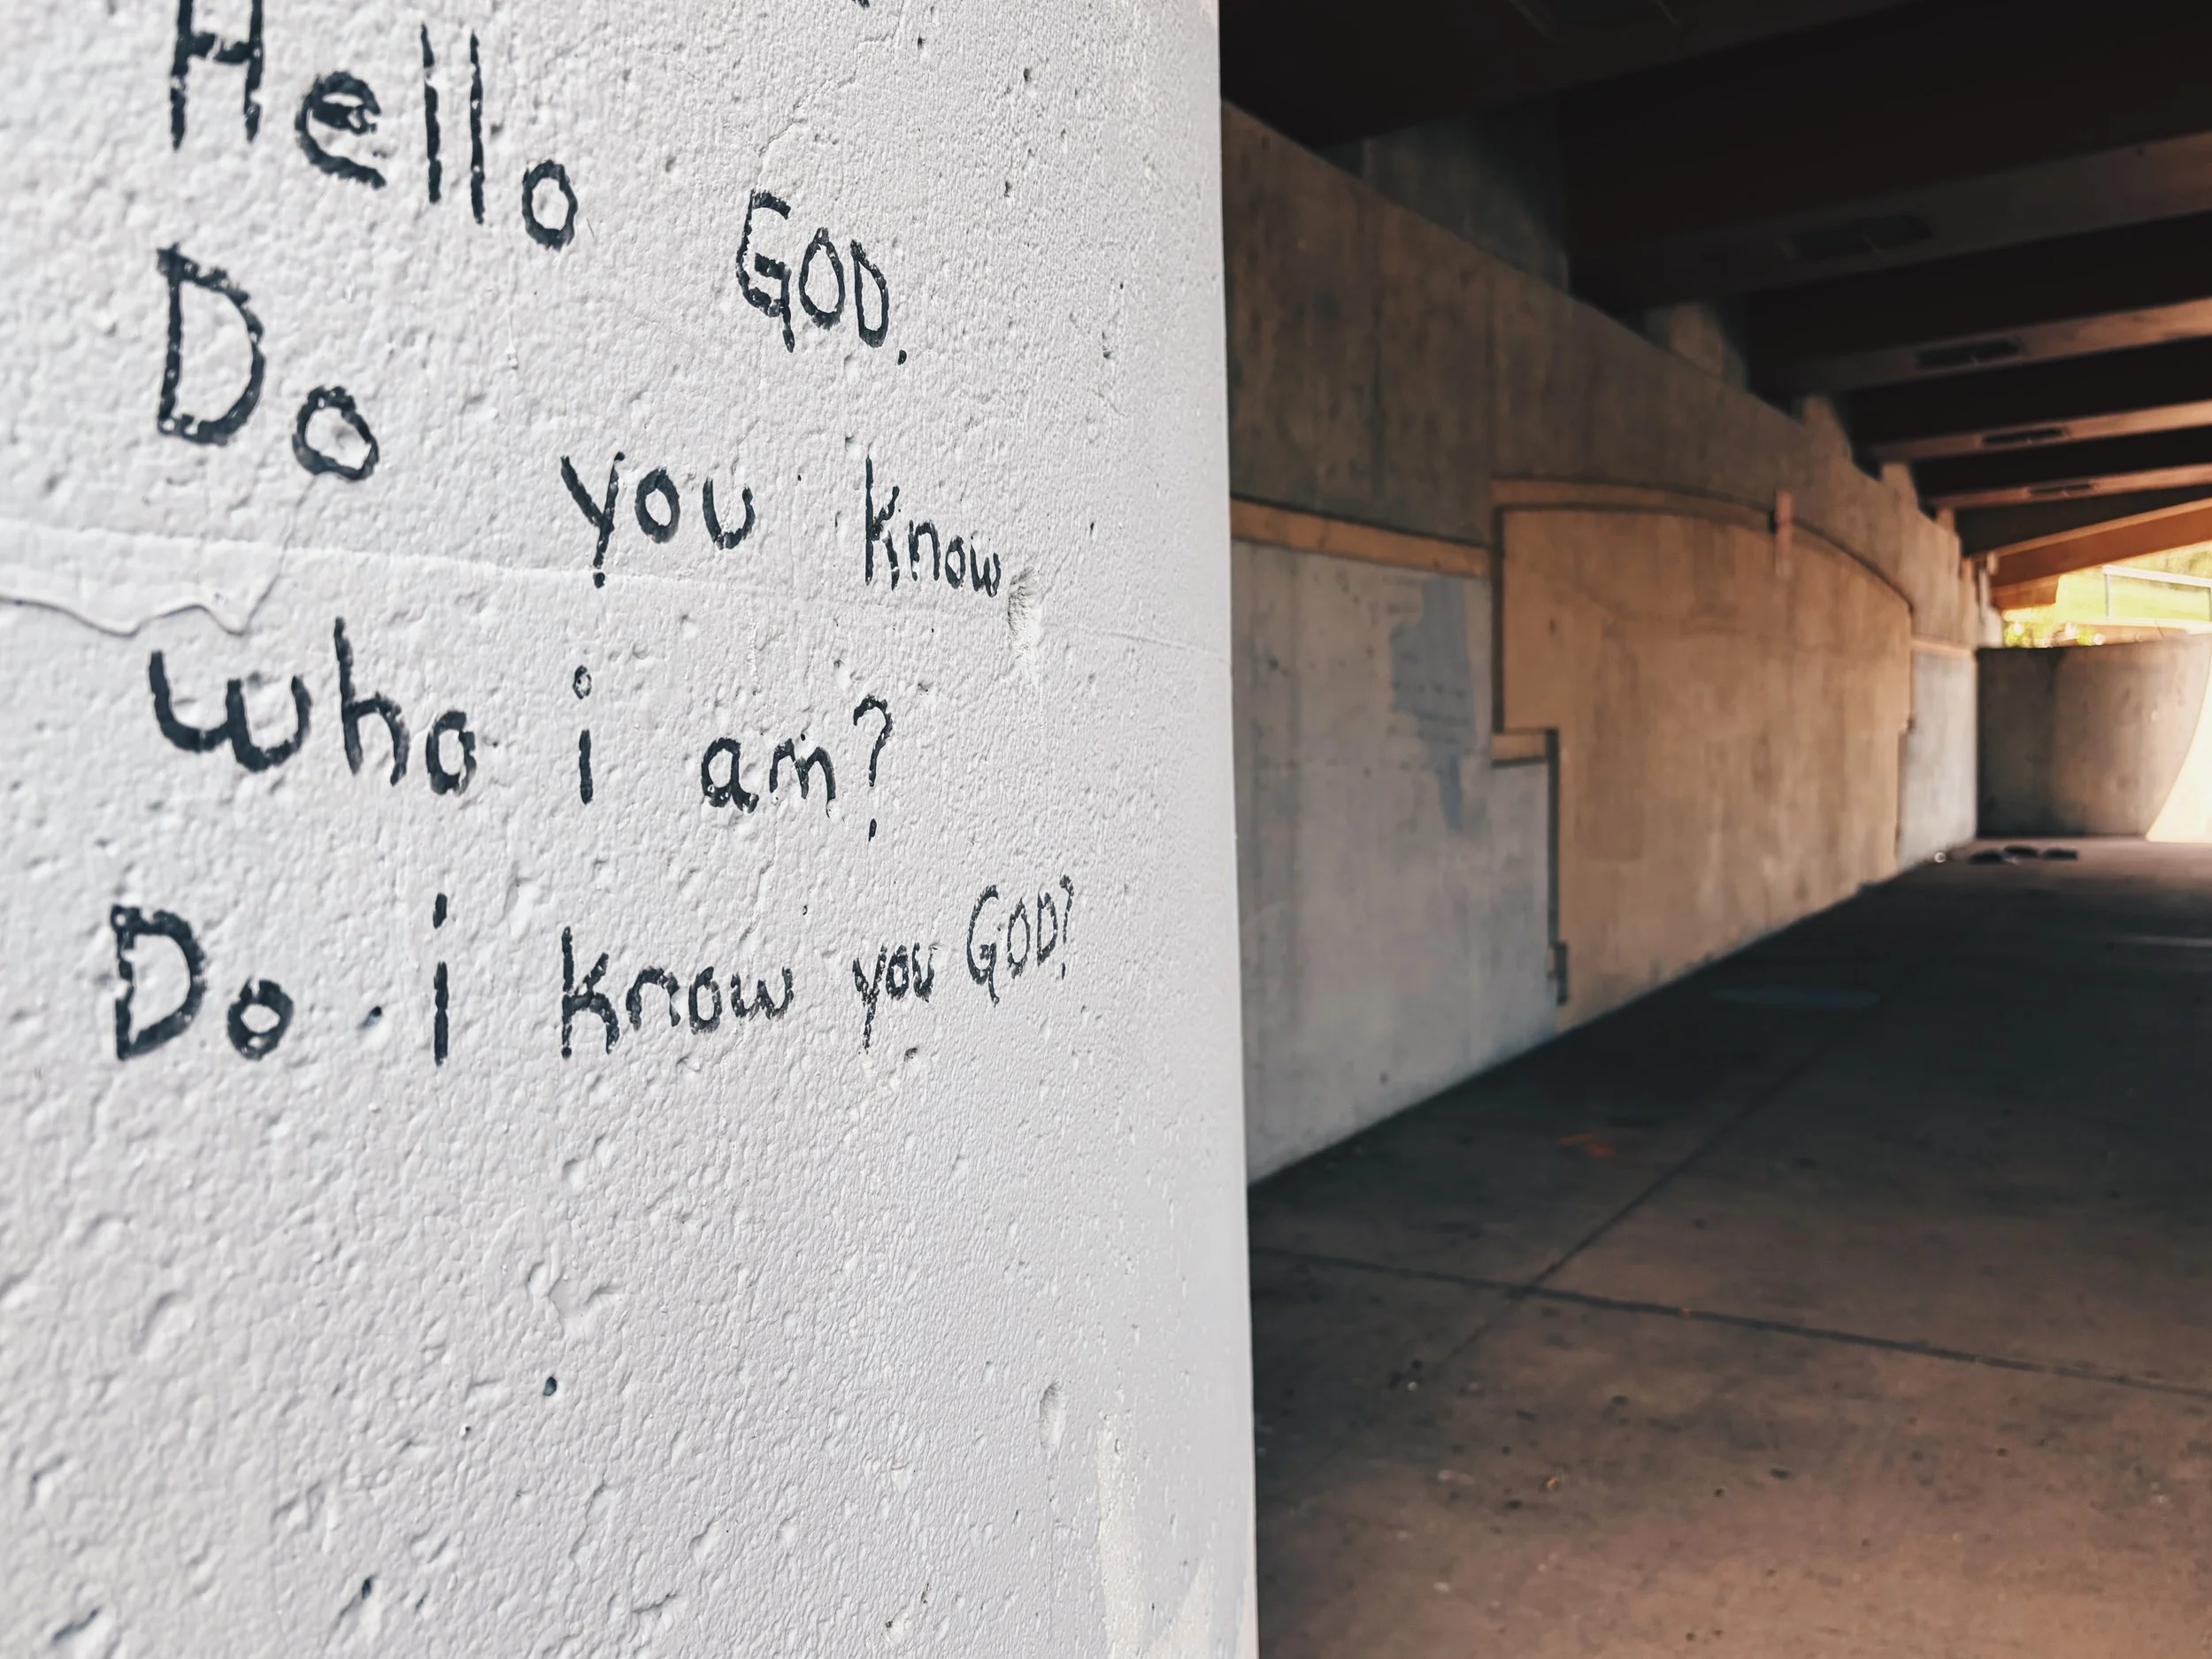 Hello GOD.
Do you know
who i am?
Do i know you GOD?